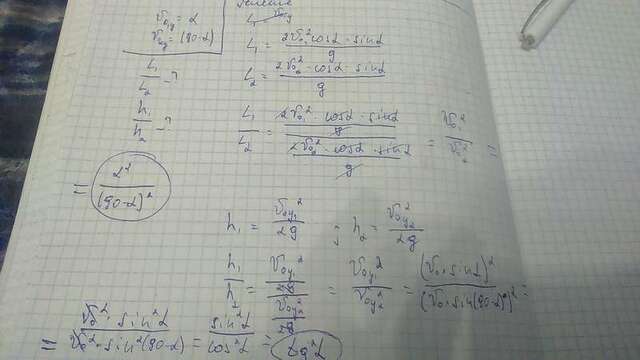 v₀₁y = α
v₀y = (90-α)
L₁/L₂ - ?
h₁/h₂ - ?
L₁ = 2v₀₁² cosα · sinα / g
L₂ = 2v₀₂² · cosα · sinα / g
L₁/L₂ = (2v₀₁² · cosα · sinα / g) / (2v₀₂² · cosα · sinα / g) = v₀₁² / v₀₂² =
= α² / (90-α)²
h₁ = v₀y₁² / 2g ; h₂ = v₀y₂² / 2g
h₁/h₂ = (v₀y₁² / 2g) / (v₀y₂² / 2g) = v₀y₁² / v₀y₂² = (v₀ · sinα)² / (v₀ · sin(90-α))² =
= v₀² · sin²α / v₀² · sin²(90-α) = sin²α / cos²α = tg²α